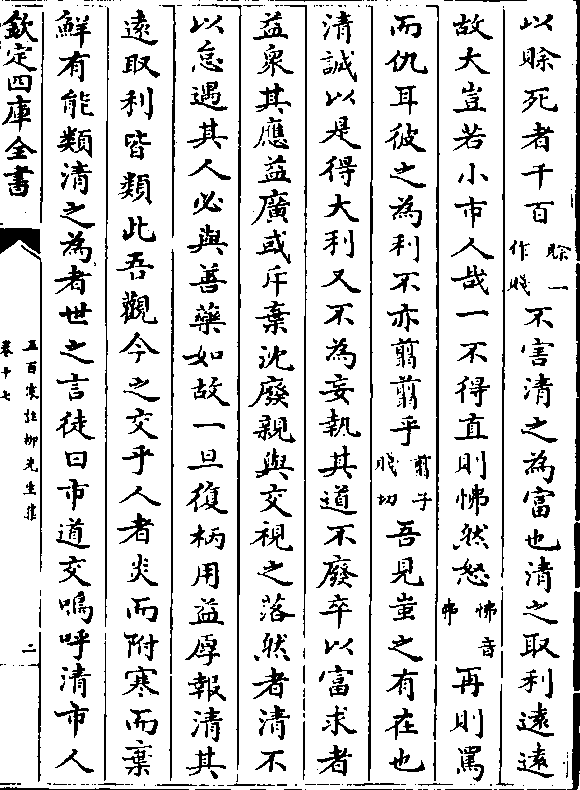 以賖死者千百賖一作賤不害清之為富也清之取利逺逺
故大豈若小市人哉一不得直則怫然怒怫音弗再則罵
而仇耳彼之為利不亦翦翦乎翦子賤切吾見蚩之有在也
清誠以是得大利又不為妄執其道不廢卒以富求者
益衆其應益廣或斥棄沈廢親與交視之落然者清不
以怠遇其人必與善藥如故一旦復柄用益厚報清其
逺取利皆類此吾觀今之交乎人者炎而附寒而棄
鮮有能類清之為者世之言徒曰市道交嗚呼清市人
欽定四庫全書
五百家註柳先生集
卷十七
二